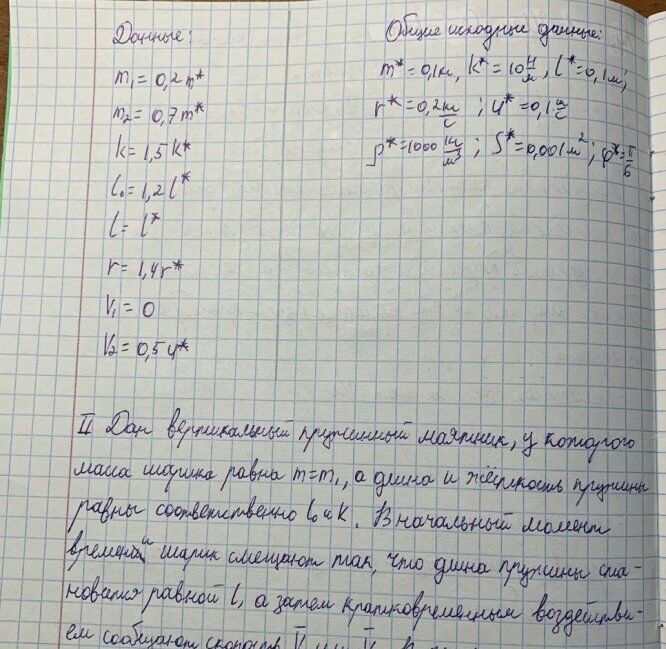 Данные:
m₁ = 0,2 m*
m₂ = 0,7 m*
k = 1,5 k*
l₀ = 1,2 l*
l = l*
r = 1,4 r*
V₁ = 0
V₂ = 0,5 u*
Общие исходные данные:
m* = 0,1 кг, k* = 10 Н/м, l* = 0,1 м;
r* = 0,2 кг/с ; u* = 0,1 м/с
ρ* = 1000 кг/м³ ; S* = 0,001 м² ; φ* = π/6
II Дан вертикальный пружинный маятник, у которого
масса шарика равна m = m₁, а длина и жёсткость пружины
равны соответственно l₀ и k. В начальный момент
времени шарик смещают так, что длина пружины ста-
новится равной l, а затем кратковременным воздействи-
ем сообщают скорость